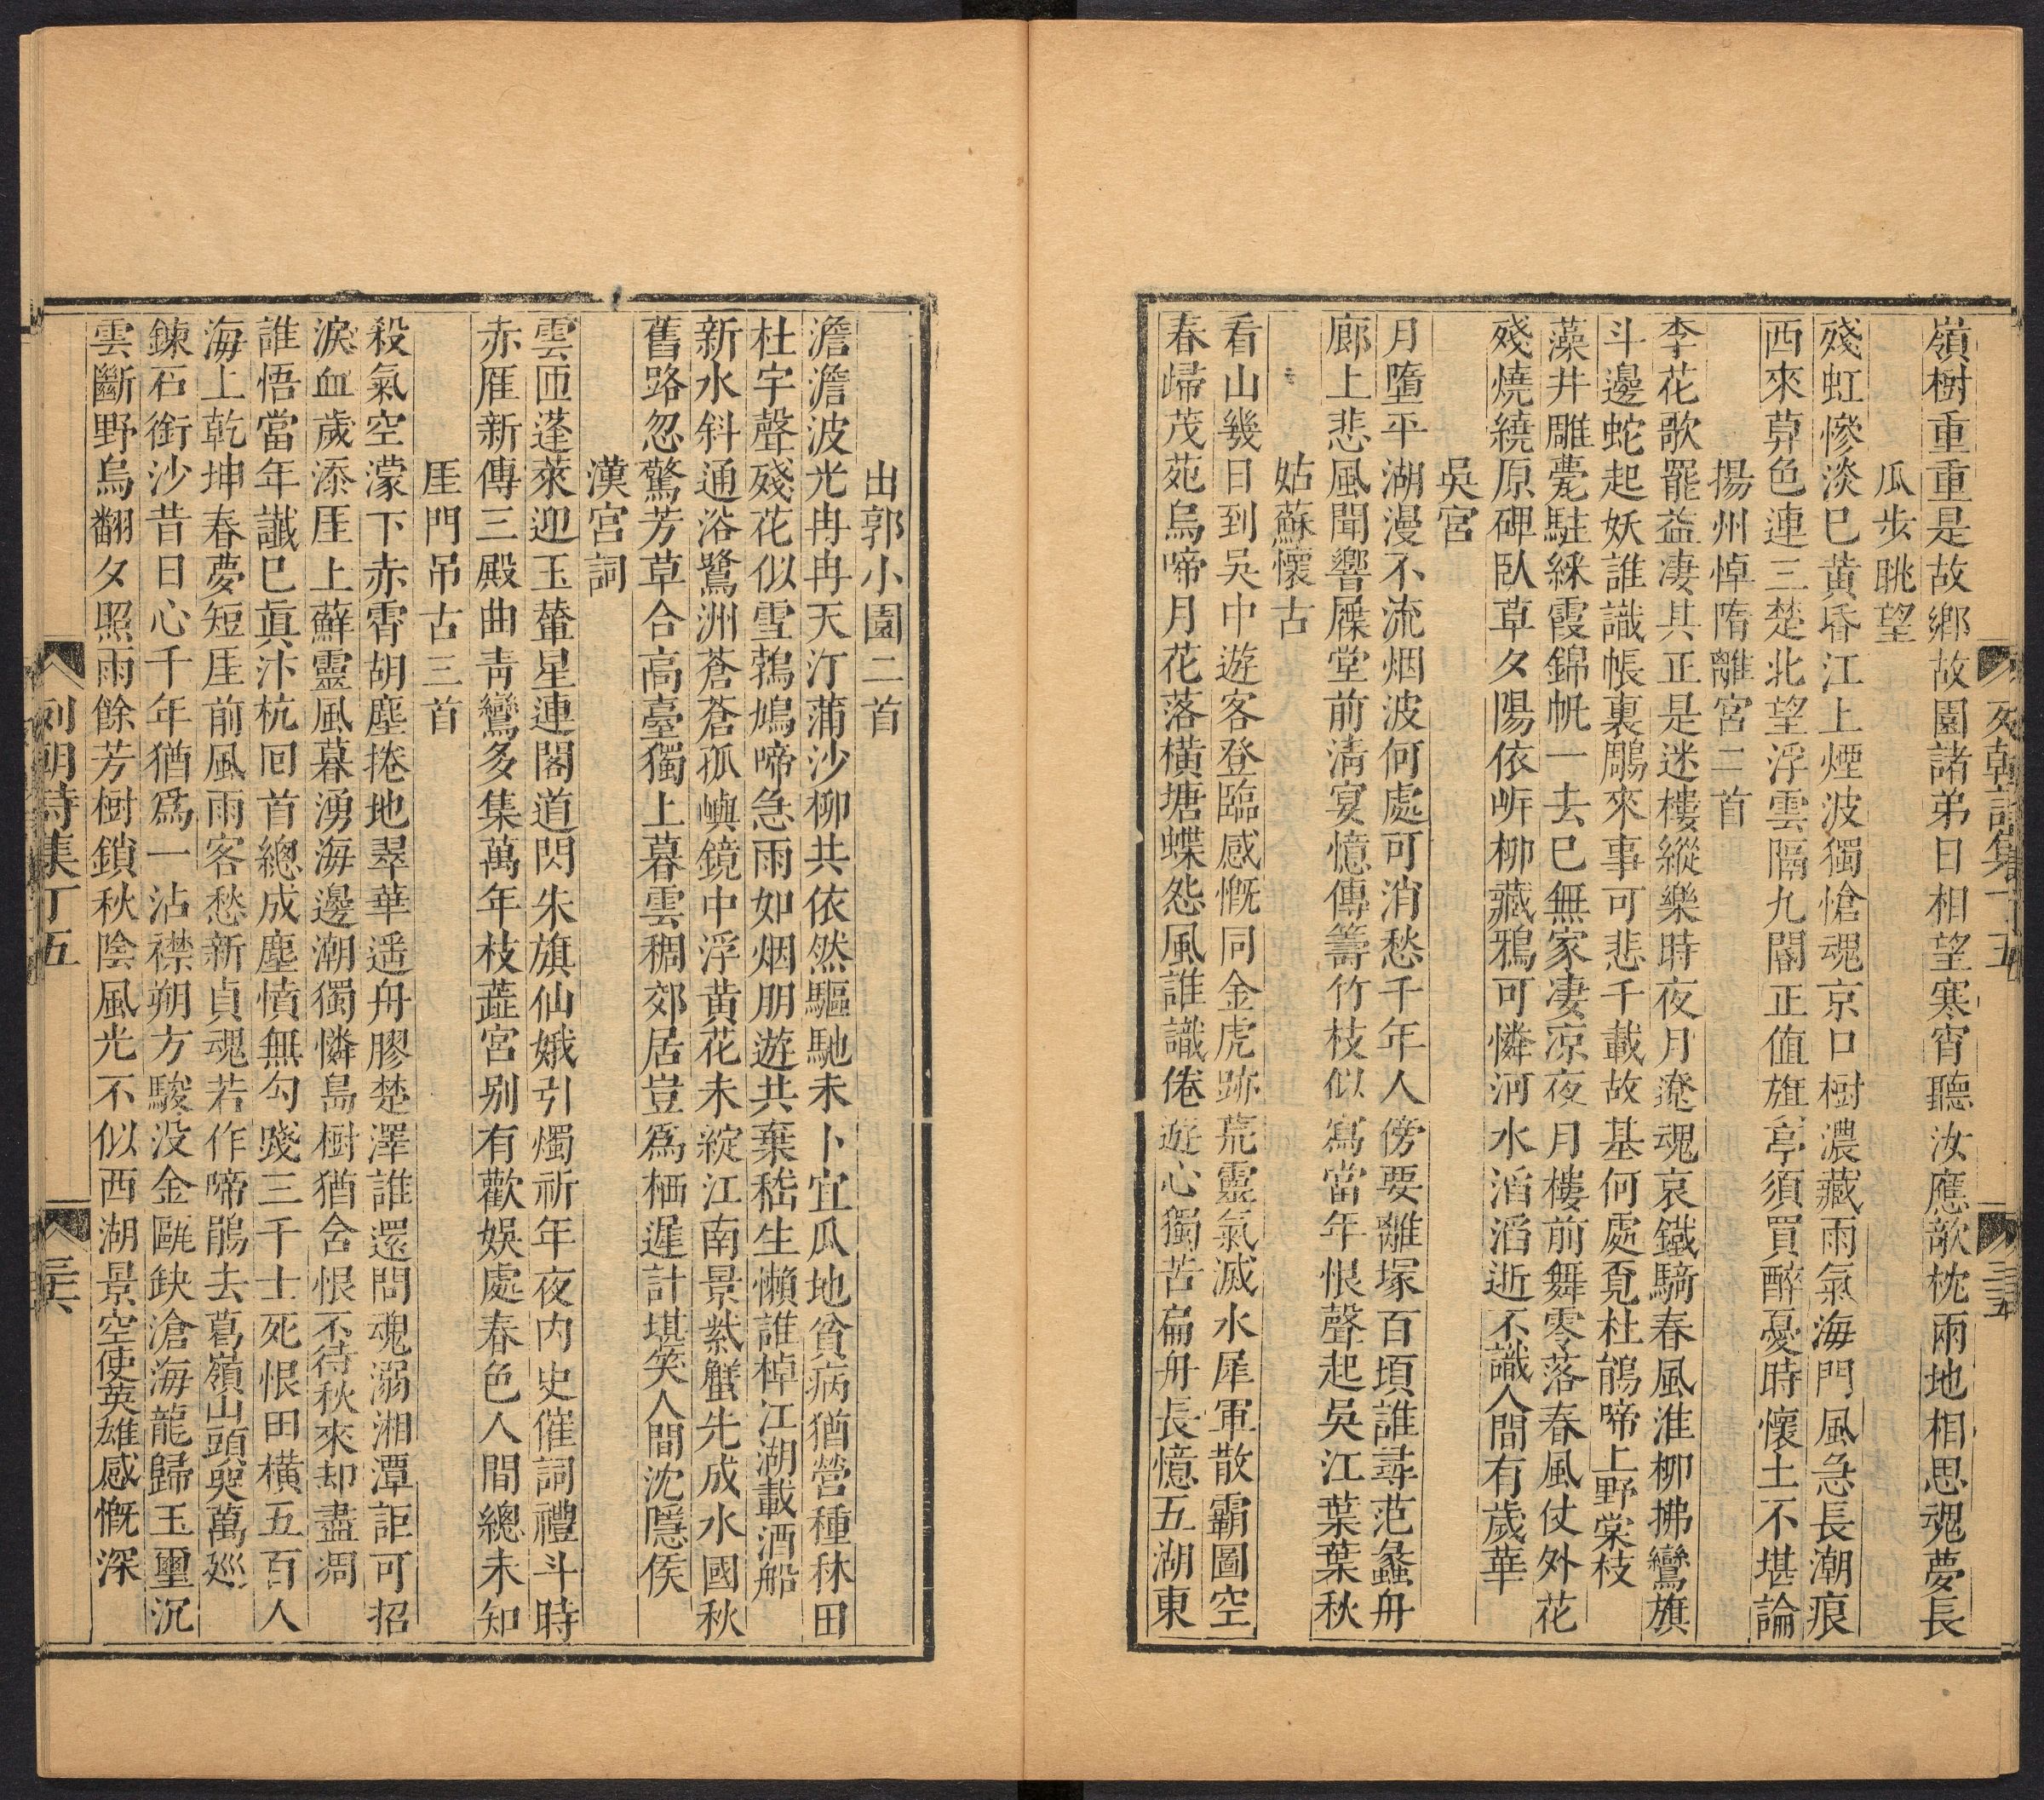 嶺樹重重是故鄉故園諸弟日相望寒宵聽汝應欹枕兩地相思魂夢長
瓜步眺望
殘虹慘淡巳黃昏江上煙波獨愴魂京口樹濃藏雨氣海門風急長潮痕
西來草色連三楚北望浮雲隔九閽正值旗亭須買醉憂時懷土不堪論
揚州悼隋離宮二首
李花歌罷益凄其正是迷樓縱樂時夜月遼魂哀鐵騎春風淮柳拂鸞旗
斗邊蛇起妖誰識帳裏鵰來事可悲千載故基何處覓杜鵑啼上野棠枝
藻井雕甍駐綵霞錦帆一去已無家凄凉夜月樓前舞零落春風仗外花
殘燒繞原碑臥草夕陽依岓柳藏鴉可憐河水滔滔逝不識人間有歲華
吳宮
月墮平湖漫不流烟波何處可消愁千年人傍要離塚百頃誰尋范蠡舟
廊上悲風聞響屧堂前淸宴憶傳籌竹枝似寫當年恨聲起吳江葉葉秋
姑蘇懷古
看山幾日到吳中遊客登臨感慨同金虎跡荒靈氣滅水犀軍散霸圖空
春歸茂苑烏啼月花落橫塘蝶怨風誰識倦遊心獨苦扁舟長憶五湖東
列朝詩集丁五
三五
出郭小園二首
澹澹波光冉冉天汀蒲沙柳共依然驅馳未卜宜瓜地貧病猶營種秫田
杜宇聲殘花似雪鵓鳩啼急雨如烟朋遊共棄嵇生懶誰棹江湖載酒船
新水斜通浴鷺洲蒼蒼孤嶼鏡中浮黃花未綻江南景紫蟹先成水國秋
舊路忽驚芳草合高臺獨上暮雲稠郊居豈爲栖遲計堪笑人間沈隱侯
漢宮詞
雲匝蓬萊迎玉輦星連閣道閃朱旗仙娥引燭祈年夜內史催詞禮斗時
赤厓新傳三殿曲靑鸞多集萬年枝蕋宮別有歡娛處春色人間總未知
厓門吊古三首
殺氣空濛下赤霄胡塵捲地翠華遥舟膠楚澤誰還問魂溺湘潭詎可招
淚血歲添厓上蘚靈風暮湧海邊潮獨憐島樹猶含恨不待秋來却盡凋
誰悟當年讖巳眞汴杭回首總成塵憤無勾踐三千士死恨田橫五百人
海上乾坤春夢短厓前風雨客愁新貞魂若作啼鵑去葛嶺山頭哭萬廵
鍊石銜沙昔日心千年猶爲一沾襟朔方駿没金甌缺滄海龍歸玉璽沉
雲斷野烏翻夕照雨餘芳樹鎖秋陰風光不似西湖景空使英雄感慨深
列朝詩集丁五
三六